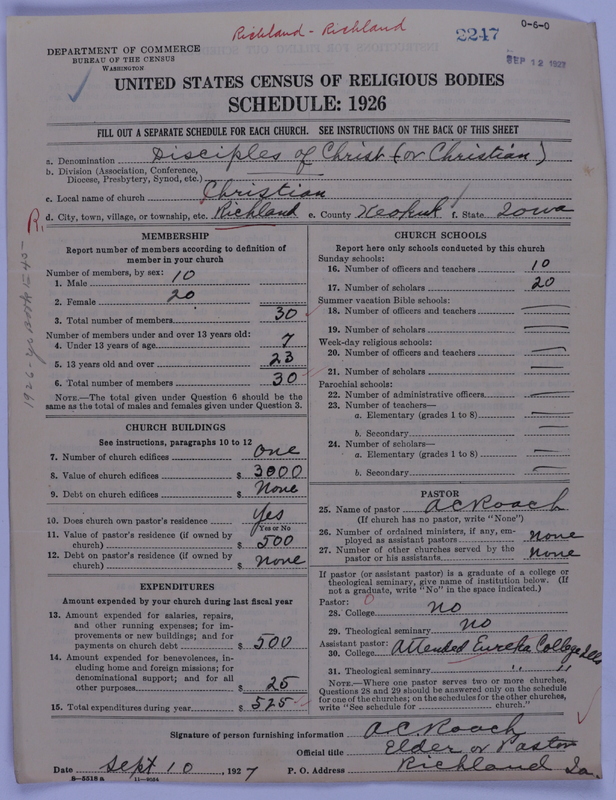 Richland - Richland
2247
0-6-0
SEP 12 1927
DEPARTMENT OF COMMERCE
BUREAU OF THE CENSUS
WASHINGTON
UNITED STATES CENSUS OF RELIGIOUS BODIES
SCHEDULE: 1926
FILL OUT A SEPARATE SCHEDULE FOR EACH CHURCH. SEE INSTRUCTIONS ON THE BACK OF THIS SHEET
a. Denomination Disciples of Christ (or Christian)
b. Division (Association, Conference, Diocese, Presbytery, Synod, etc.)
c. Local name of church Christian
R. d. City, town, village, or township, etc. Richland e. County Keokuk f. State Iowa
MEMBERSHIP
Report number of members according to definition of member in your church
Number of members, by sex:
1. Male 10
2. Female 20
3. Total number of members 30
Number of members under and over 13 years old:
4. Under 13 years of age 7
5. 13 years old and over 23
6. Total number of members 30
NOTE.—The total given under Question 6 should be same as the total of males and females given under Question 3.
CHURCH BUILDINGS
See instructions, paragraphs 10 to 12
7. Number of church edifices One
8. Value of church edifices $ 3000
9. Debt on church edifices $ None
10. Does church own pastor's residence Yes
Yes or No
11. Value of pastor's residence (if owned by church) $ 500
12. Debt on pastor's residence (if owned by church) $ None
EXPENDITURES
Amount expended by your church during last fiscal year
13. Amount expended for salaries, repairs, and other running expenses; for improvements or new buildings; and for payments on church debt $ 500
14. Amount expended for benevolences, including home and foreign missions; for denominational support; and for all other purposes $ 25
15. Total expenditures during year $ 525
CHURCH SCHOOLS
Report here only schools conducted by this church
Sunday schools:
16. Number of officers and teachers 10
17. Number of scholars 20
Summer vacation Bible schools:
18. Number of officers and teachers
19. Number of scholars
Week-day religious schools:
20. Number of officers and teachers
21. Number of scholars
Parochial schools:
22. Number of administrative officers
23. Number of teachers—
a. Elementary (grades 1 to 8)
b. Secondary
24. Number of scholars—
a. Elementary (grades 1 to 8)
b. Secondary
PASTOR
25. Name of pastor A C Roach
(If church has no pastor, write "None")
26. Number of ordained ministers, if any, employed as assistant pastors None
27. Number of other churches served by the pastor or his assistants None
If pastor (or assistant pastor) is a graduate of a college or theological seminary, give name of institution below. (If not a graduate, write "No" in the space indicated.)
Pastor:
28. College No
29. Theological seminary No
Assistant pastor:
30. College Attended Eureka College Ills
31. Theological seminary " "
NOTE.—Where one pastor serves two or more churches, Questions 28 and 29 should be answered only on the schedule for one of the churches; on the schedules for the other churches, write "See schedule for church."
Signature of person furnishing information A C Roach
Official title Elder or Pastor
Date Sept 10, 1927 P. O. Address Richland Ia.
8-5518a 11-9054